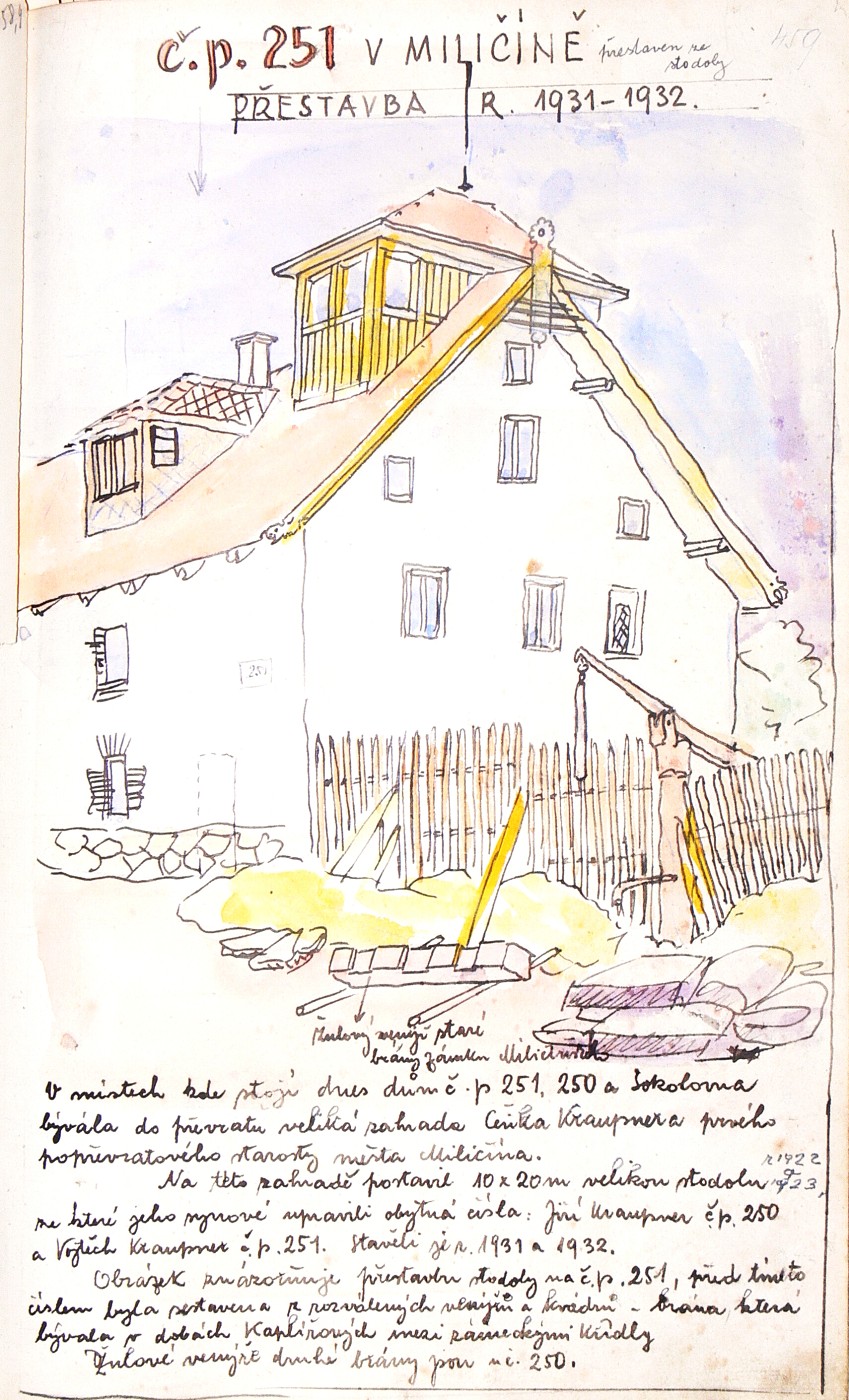 58,9
459
č.p. 251 V MILIČÍNĚ přestaven ze
stodoly
PŘESTAVBA R. 1931-1932.
251
Žulový staré
brány zámku
V místech kde stojí dnes dům č.p 251, 250 a Sokolovna
bývala do převratu veliká zahrada Čeňka Kraupnera prvého
popřevratového starosty města Miličína.
Na této zahradě postavil 10 x 20 m velikou stodolu r 1922
1923,
ze které jeho synové upravili obytná čísla: Jiří Kraupner č.p. 250
a Vojtěch Kraupner č.p. 251. Stavěli je r. 1931 a 1932.
Obrázek znázorňuje přestavbu stodoly na č.p. 251, před tímto
číslem byla sestavena z rozvalených a kvádrů - brána, která
bývala v dobách Kaplířových mezi zámeckými křídly
Žulové druhé brány jsou u č. 250.